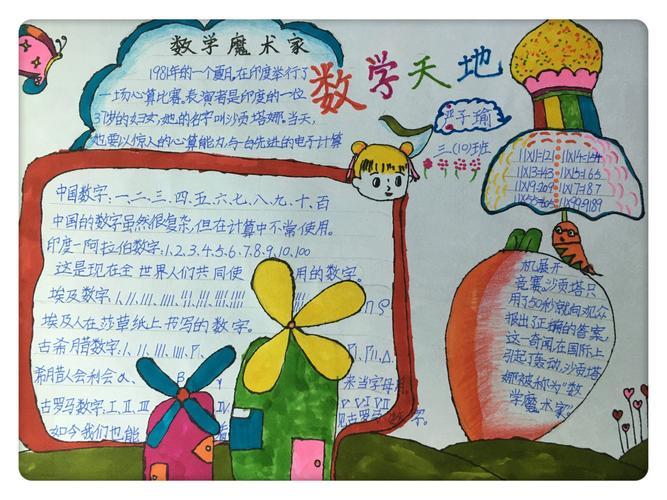 数学魔术家
1981年的一个夏日,在印度举行了
一场心算比赛,表演者是印度的一位
37岁的妇女,她的名字叫沙贡塔娜。当天,
她要以惊人的心算能力,与一台先进的电子计算
数学天地
严子瑜
三(10)班
11X11=121
11X14=154
11X13=143
11X15=165
11X17=187
机展开
竞赛。沙贡塔只
用了50秒就向观众
报出正确的答案
这一奇闻,在国际上
引起了轰动,沙贡塔
娜被称为“数
学魔术家”
中国数字:一、二、三、四、五、六、七、八、九、十、百
中国的数字虽然很复杂,但在计算中不常使用。
印度-阿拉伯数字:1、2、3、4、5、6、7、8、9、10、100
这是现在全世界人们共同使 用的数字。
埃及数字:
埃及人在莎草纸上书写的数字。
古希腊数字:
希腊人会利会α、 B 来当字母用
古罗马数字:I、II、III IV
如今我们也能 看 见古罗马数字。